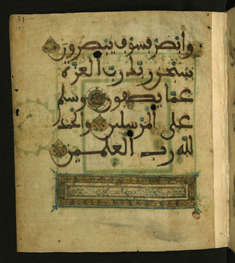 وابصر فسوف يبصرون
سبحن ربك رب العزة
عما يصفون وسلم
على المرسلين والحمد
لله رب العلمين